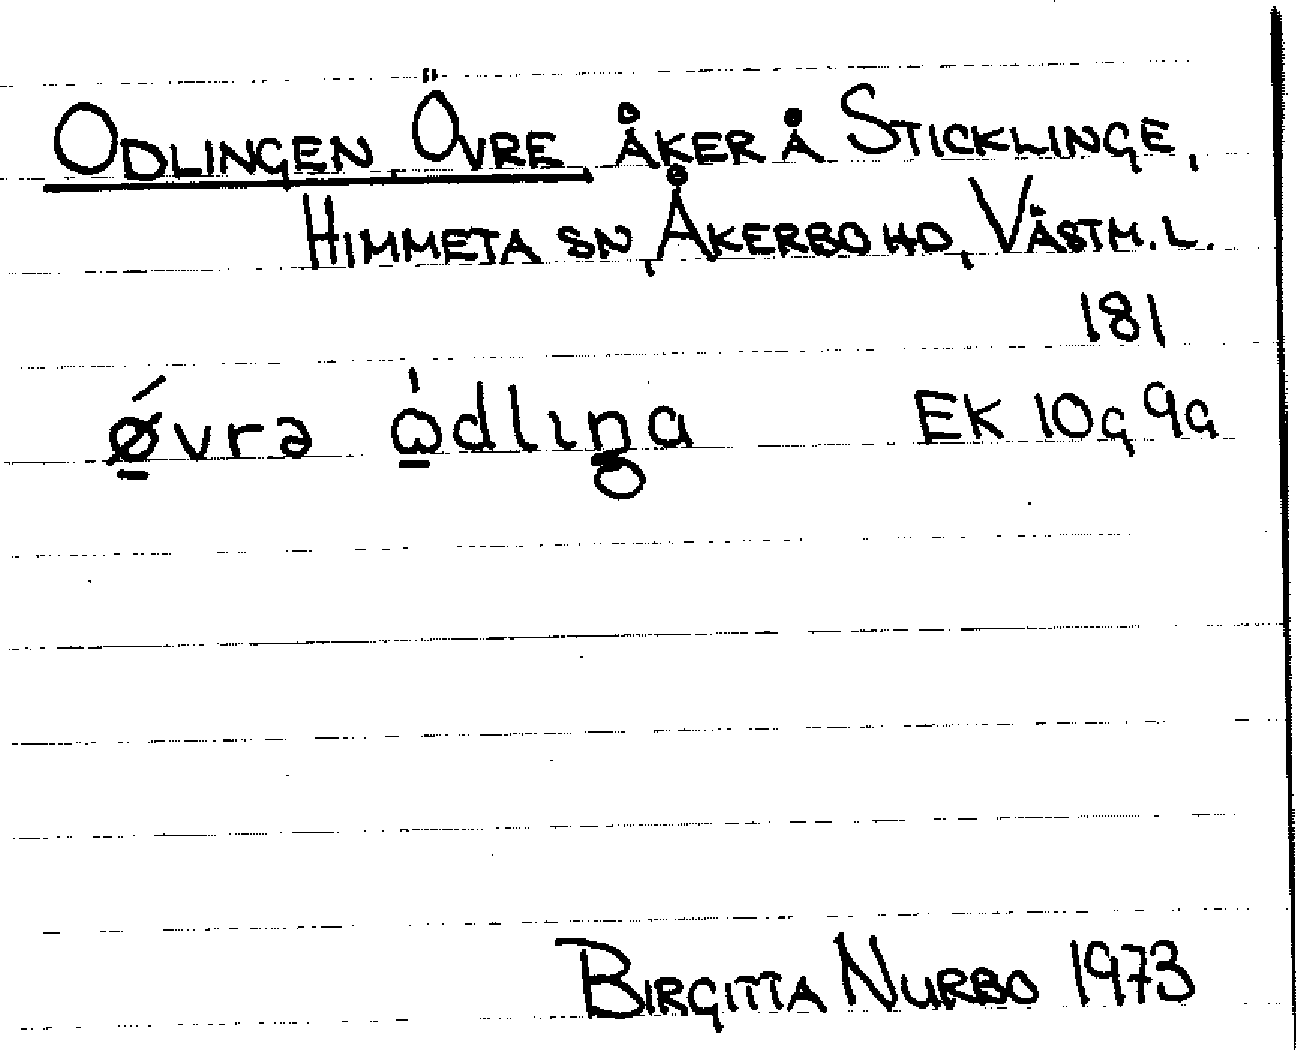 ODLINGEN, ÖVRE ÅKER Å STICKLINGE,
HIMMETA SN, ÅKERBO HD, VÄSTM. L.
181
ǿ̱vrə ω̱̍dlıŋa EK 10g 9g
BIRGITTA NURBO 1973